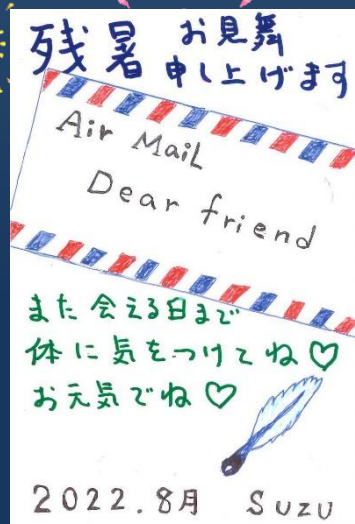 残暑 お見舞
申し上げます
Air Mail
Dear friend
また会える日まで
体に気をつけてね♡
お元気でね♡
2022.8月 Suzu